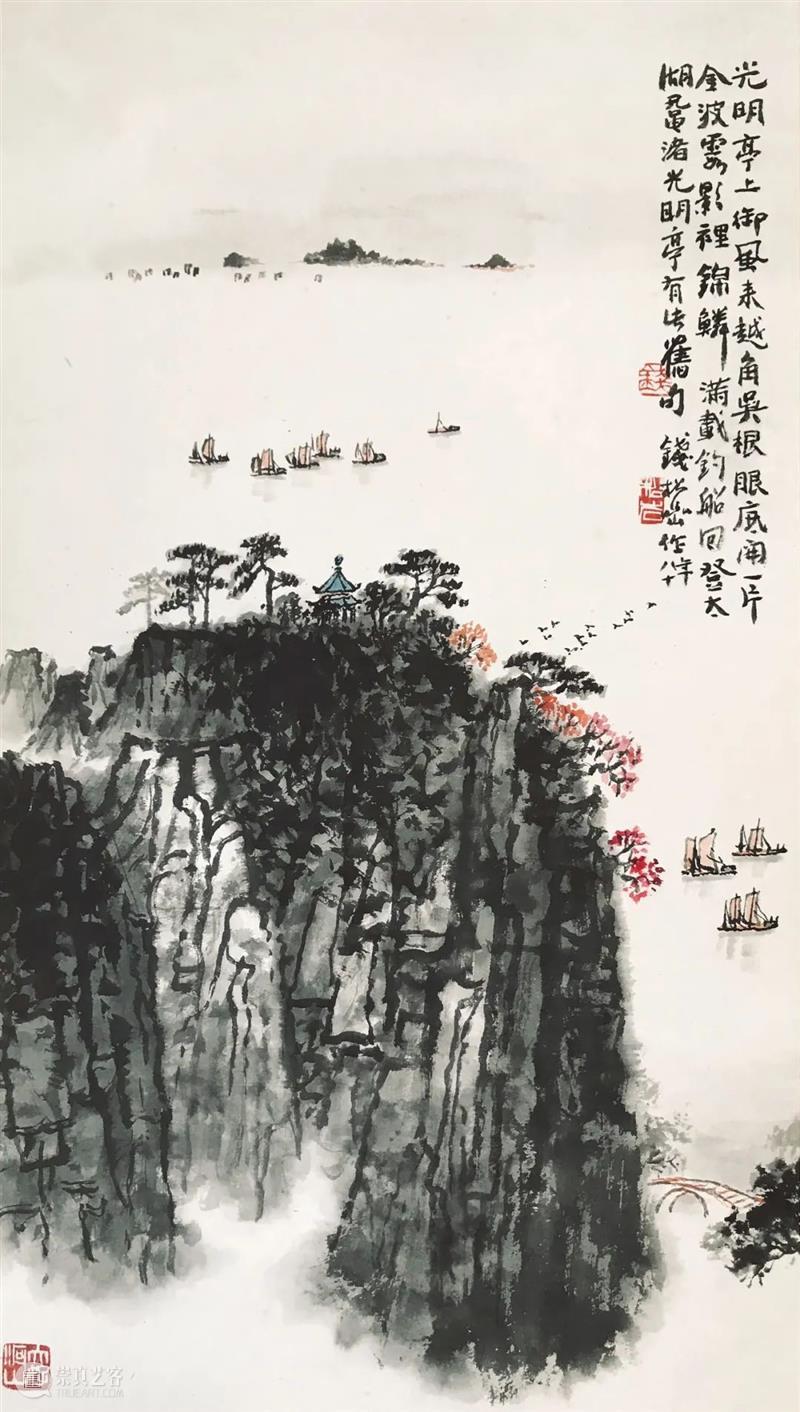 光明亭上御风来越角吳根眼底開一片
金波雲影裡錦鱗滿載釣船回登太
湖黿渚光明亭有此舊句 錢松嵒作年八十
錢
松嵒
大
河山
崇真艺客
TRUEART.COM